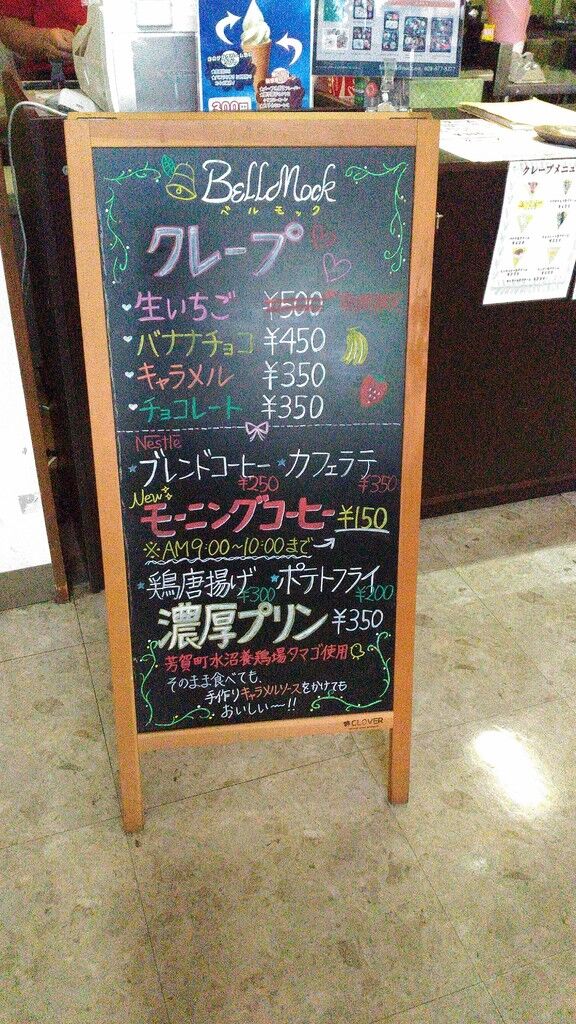 300円
BellMock
ベルモック
クレープ
生いちご ¥500
バナナチョコ ¥450
キャラメル ¥350
チョコレート ¥350
Nestlé
ブレンドコーヒー ¥250 カフェラテ ¥350
New
モーニングコーヒー ¥150
※AM9:00～10:00まで
鶏唐揚げ ¥300 ポテトフライ ¥200
濃厚プリン ¥350
芳賀町水沼養鶏場タマゴ使用
そのまま食べても、
手作りキャラメルソースをかけても
おいしい～!!
CLOVER
クレープメニュー